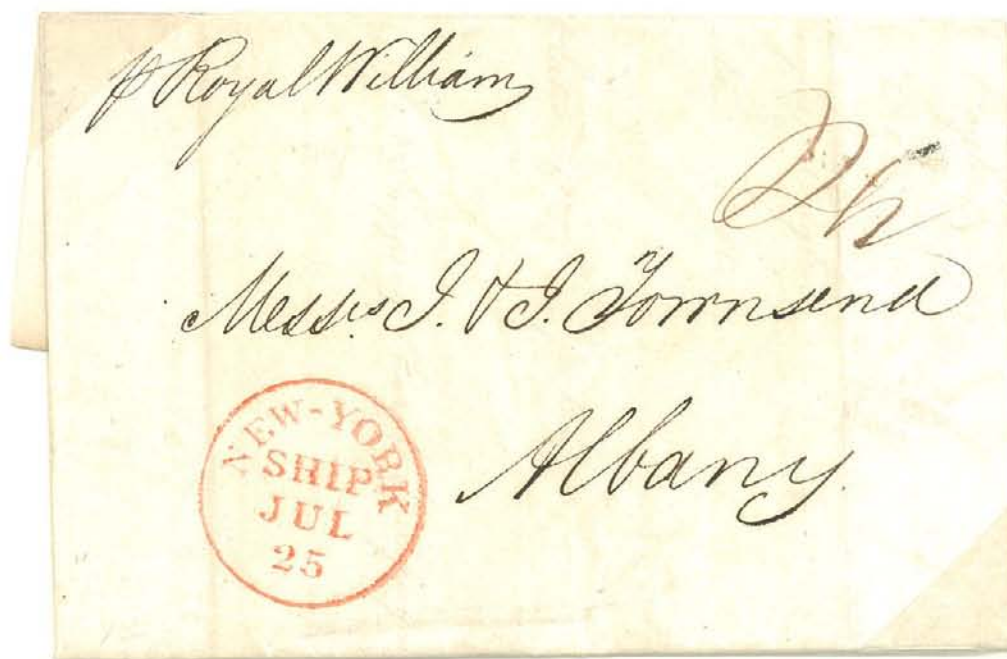 p Royal William
Messrs J. & J. Townsend
Albany.
NEW-YORK
SHIP
JUL
25